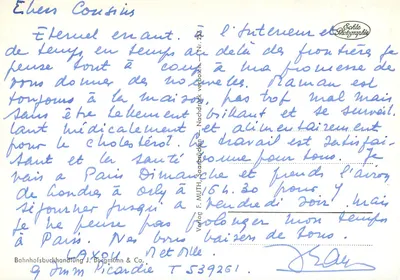 Chers Cousins
Eternel errant. à l'interieur et
de temps en temps au delà des frontières je
pense tout à coup à ma promesse de
vous donner des nouvelles. Maman est
toujours à la maison pas trop mal mais
sans être tellement brillant et se surveil.
lant médicalement et alimentairement
pour le cholestérol. Le travail est satisfai-
sant et la santé comme pour tous. Je
vais à Paris Dimanche et prends l'avion
de Londres à Orly à 15h.30 pour y
séjourner jusqu'à Vendredi soir. Mais
je ne pense pas prolonger mon temps
à Paris. Nos bons baisers de tous.
Melle.
9 Picardie T 539261
Echte Photographie
Verlag F. MUTH,
Bahnhofsbuchhandlung J. & Co.